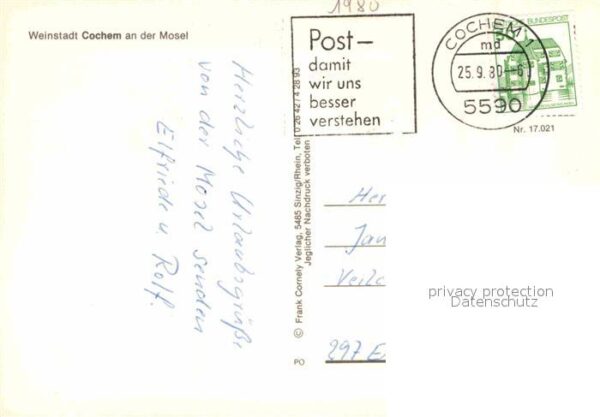 1980
Weinstadt Cochem an der Mosel
Post—
damit
wir uns
besser
verstehen
COCHEM 1
md
25.9.80-6
5590
50
BUNDESPOST
Nr. 17.021
Herzliche Urlaubsgrüße
von der Mosel senden
Elfriede u. Rolf.
© Frank Cornely Verlag, 5485 Sinzig/Rhein, Tel. 0 26 42 / 4 28 93
Jeglicher Nachdruck verboten
PO
Her
Jan
297 E
privacy protection
Datenschutz